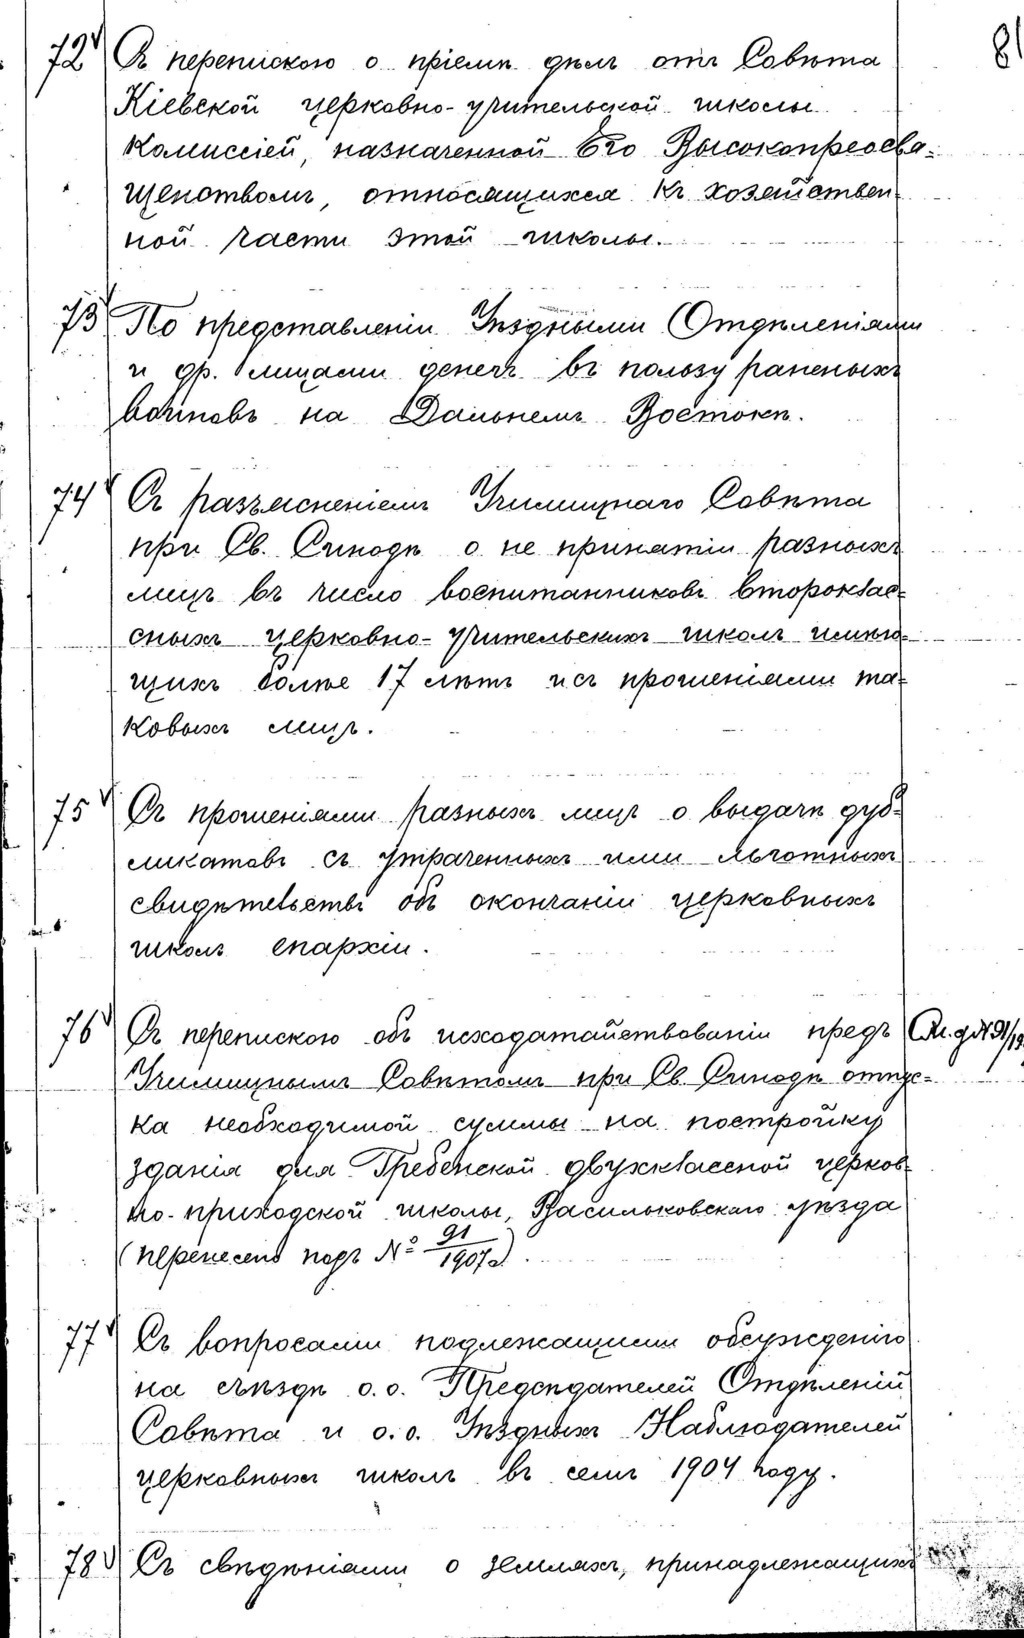 81
72 Съ перепискою о пріемѣ дѣлъ отъ Совѣта
Кіевской церковно-учительской школы
Комиссіей, назначенной Его Высокопреосвя=
щенствомъ, относящихся къ хозяйствен=
ной части этой школы.
73 По представленіи Уѣздными Отдѣленіями
и др. лицами денегъ въ пользу раненыхъ
воиновъ на Дальнемъ Востокѣ.
74 Съ разъясненіемъ Училищнаго Совѣта
при Св. Синодѣ о не принятіи разныхъ
лицъ въ число воспитанниковъ второклас=
сныхъ церковно-учительскихъ школъ имѣю=
щихъ болѣе 17 лѣтъ и съ прошеніями та=
ковыхъ лицъ.
75 Съ прошеніями разныхъ лицъ о выдачѣ дуб=
ликатовъ съ утраченныхъ ими льготныхъ
свидѣтельствъ объ окончаніи церковныхъ
школъ епархіи.
76 Съ перепискою объ исходатайствованіи предъ См. д. № 91/19
Училищнымъ Совѣтомъ при Св. Синодѣ отпус=
ка необходимой суммы на постройку
зданія для Гребенской двухклассной церков=
но-приходской школы, Васильковскаго уѣзда
(перенесено подъ № 91/1907 г.).
77 Съ вопросами подлежащими обсужденію
на съѣздѣ о.о. Предсѣдателей Отдѣленій
Совѣта и о.о. Уѣздныхъ Наблюдателей
церковныхъ школъ въ семъ 1904 году.
78 Съ свѣдѣніями о земляхъ, принадлежащихъ